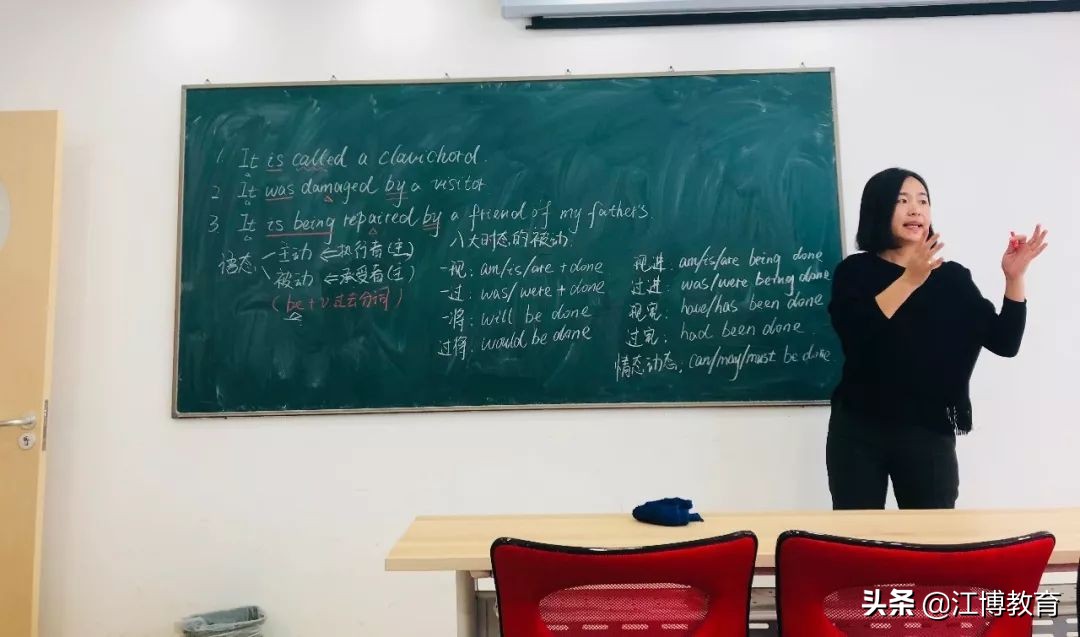 1. It is called a clavichord.
2 It was damaged by a visitor
3. It is being repaired by a friend of my father's.
语态 主动 ⇐执行者(主)
被动 ⇐承受者(主)
(be+v过去分词)
八大时态的被动
一现: am/is/are + done
一过: was/were + done
一将: will be done
过将: would be done
现进: am/is/are being done
过进: was/were being done
现完: have/has been done
过完: had been done
情态动态: can/may/must be done
头条 @江博教育